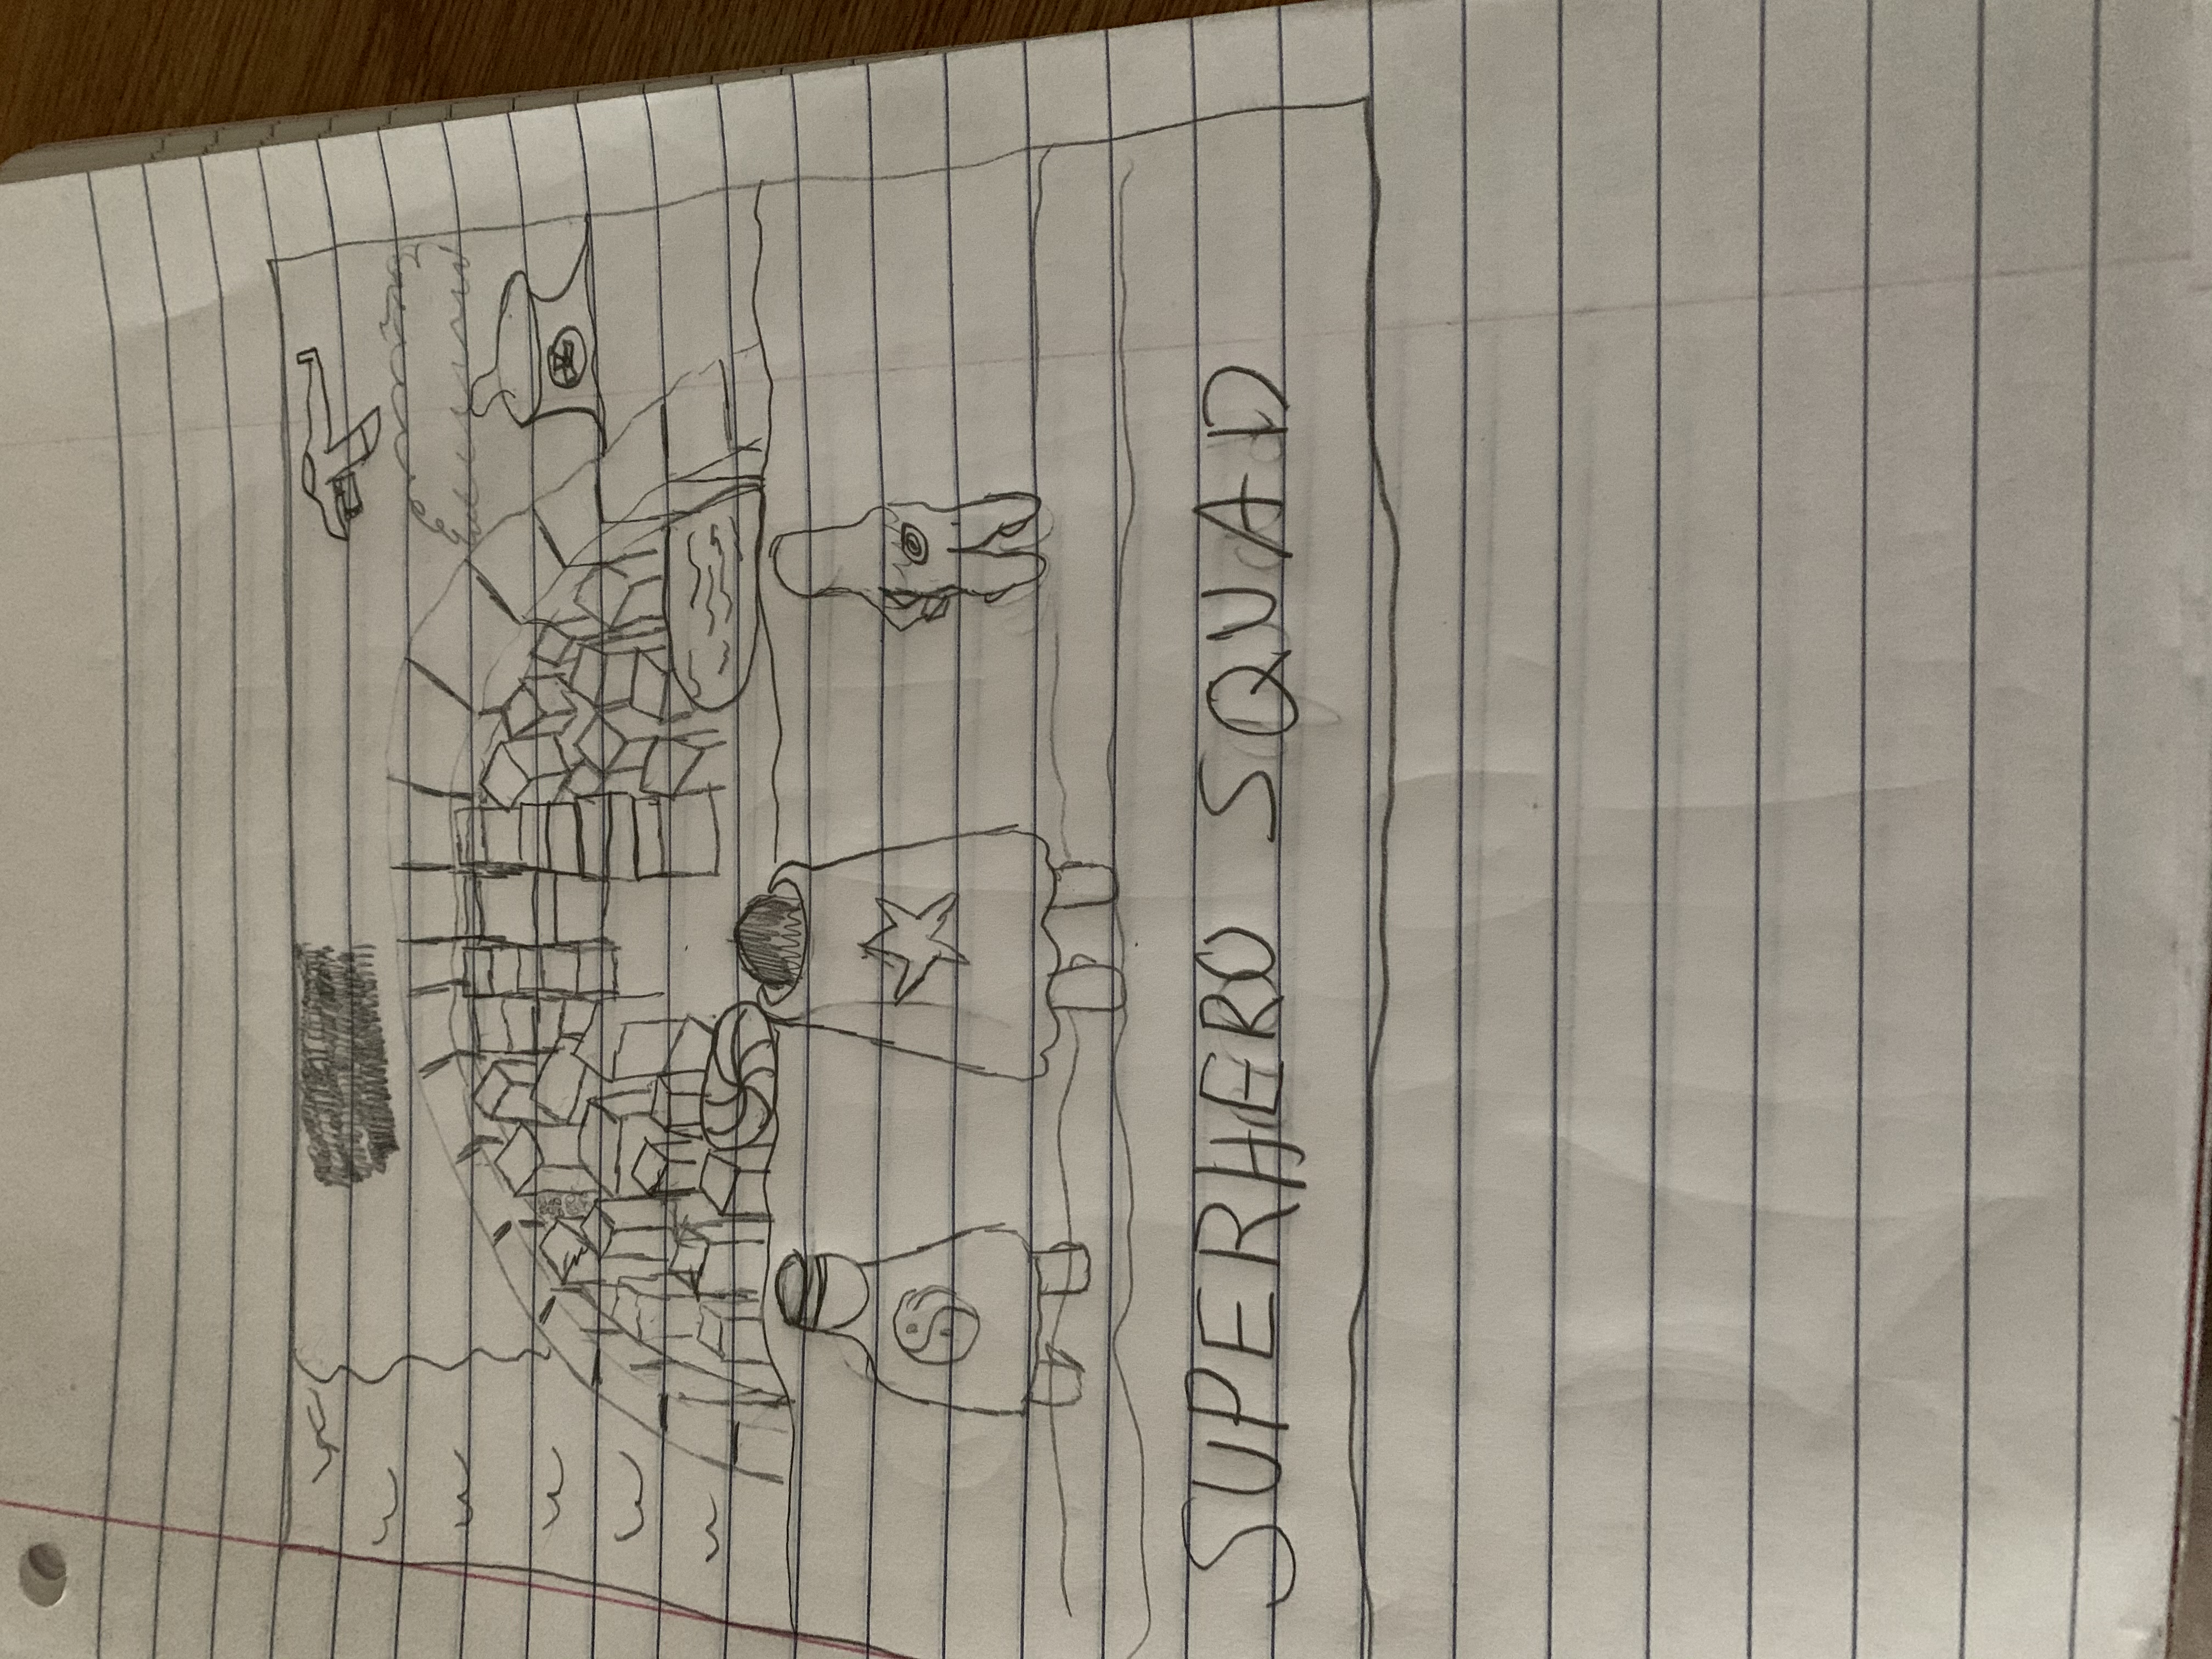 SUPERHERO SQUAD